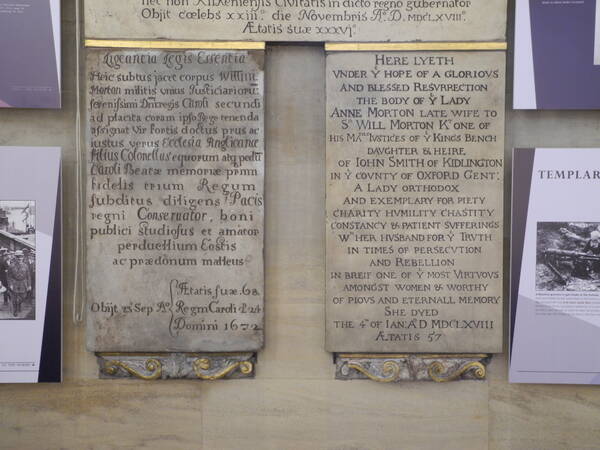 nec non Kilkeniensis Civitatis in dicto regno gubernator
Obijt cœlebs xxiii°. die Novembris A°. D. MDCLXVIII.
Ætatis suæ XXXVI°.
Ligeantia Legis Essentia
Heic subtus jacet corpus Willmi
Morton militis unius Justiciarioru
serenissimi Dni regis Caroli secundi
ad placita coram ipso Rege tenenda
assignat Vir fortis doctus prus ac
iustus verus Ecclesia Anglicanæ
filius Colonellus equorum atq pedu
Caroli Beatæ memoriæ primi
fidelis trium Regum
subditus diligens Pacis
regni Conservator, boni
publici studiosus et amator
perduellium Eostis
ac prædonum malleus
Ætatis suæ . 68
Obijt 23 Sep A°. Regni Caroli 2 24
Domini 1672
HERE LYETH
VNDER Y HOPE OF A GLORIOVS
AND BLESSED RESVRRECTION
THE BODY OF Y LADY
ANNE MORTON LATE WIFE TO
Sr. WILL MORTON Kt. ONE OF
HIS MATIES IVSTICES OF Y KINGS BENCH
DAUGHTER & HEIRE,
OF IOHN SMITH OF KIDLINGTON
IN Y COVNTY OF OXFORD GENT;
A LADY ORTHODOX
AND EXEMPLARY FOR PIETY
CHARITY HVMILITY CHASTITY
CONSTANCY & PATIENT SUFFERINGS
Wth HER HVSBAND FOR Y TRVTH
IN TIMES OF PERSECVTION
AND REBELLION
IN BREIF ONE OF Y MOST VIRTVOVS
AMONGST WOMEN & WORTHY
OF PIOVS AND ETERNALL MEMORY
SHE DYED
THE 4th OF IAN: A° D MDCLXVIII
ÆTATIS 57
TEMPLAR